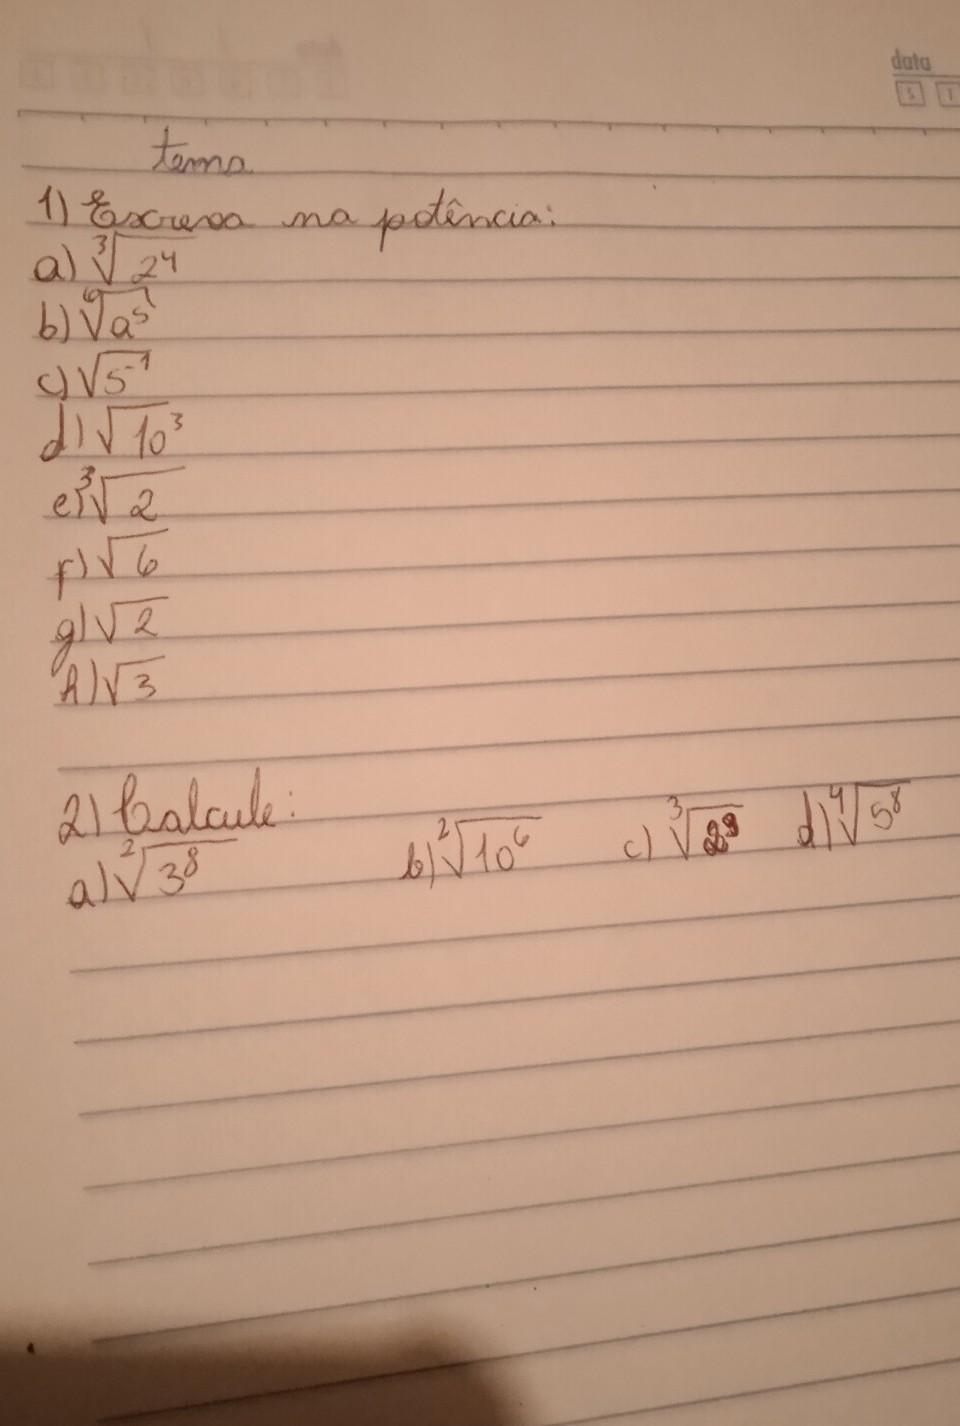 data
S T
tema
1) Escreva na potência:
a) ³√2⁴
b) ⁶√a⁵
c) √5⁻¹
d) √10³
e) ³√2
f) √6
g) √2
h) √3
2) Calcule:
a) ²√3⁸ b) ²√10⁶ c) ³√2⁹ d) ⁴√5⁸